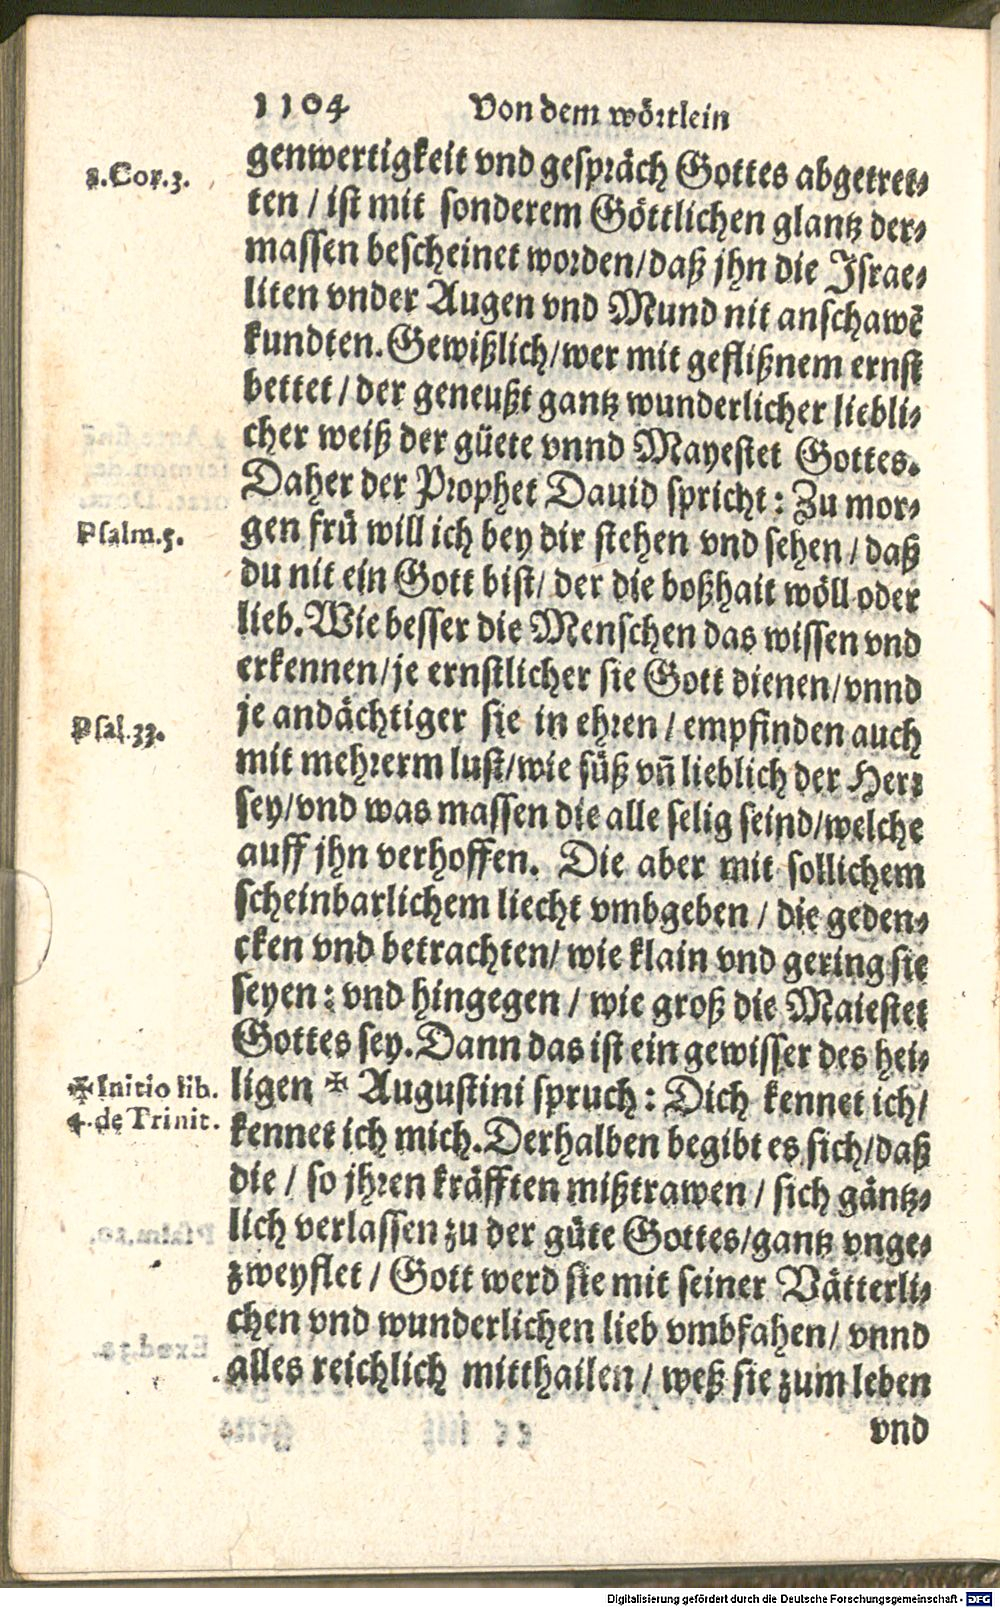 1104 Von dem wörtlein
genwertigkeit vnd gespräch Gottes abgetret-
2.Cor.3.
ten / ist mit sonderem Göttlichen glantz der-
massen bescheinet worden/daß jhn die Israe-
liten vnder Augen vnd Mund nit anschawẽ
kundten.Gewißlich/wer mit geflißnem ernst
bettet / der geneußt gantz wunderlicher liebli-
cher weiß der güete vnnd Mayestet Gottes.
Daher der Prophet Dauid spricht: Zu mor-
Psalm.5.
gen frü will ich bey dir stehen vnd sehen / daß
du nit ein Gott bist/ der die boßhait wöll oder
lieb.Wie besser die Menschen das wissen vnd
erkennen/je ernstlicher sie Gott dienen/vnnd
Psal.33.
je andächtiger sie in ehren / empfinden auch
mit mehrerm lust/wie süß vñ lieblich der Herr
sey/vnd was massen die alle selig seind/welche
auff jhn verhoffen. Die aber mit sollichem
scheinbarlichem liecht vmbgeben / die geden-
cken vnd betrachten/ wie klain vnd gering sie
seyen: vnd hingegen / wie groß die Maiestet
Gottes sey.Dann das ist ein gewisser des hei-
✠Initio lib.
4.de Trinit.
ligen ✠ Augustini spruch: Dich kennet ich/
kennet ich mich.Derhalben begibt es sich/daß
die / so jhren kräfften mißtrawen / sich gäntz-
lich verlassen zu der güte Gottes/gantz vnge-
zweyflet / Gott werd sie mit seiner Vätterli-
chen vnd wunderlichen lieb vmbfahen/ vnnd
alles reichlich mitthailen / weß sie zum leben
vnd
Digitalisierung gefördert durch die Deutsche Forschungsgemeinschaft - DFG